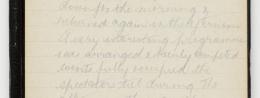 down for the morning &
returned again in the afternoon
A very interesting programme
was arranged & keenly contested
events fully occupied the
spectators till during the